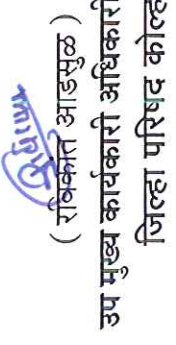 ( रविकांत आडसुळ )
उप मुख्य कार्यकारी अधिकारी
जिल्हा परिषद कोल्ह